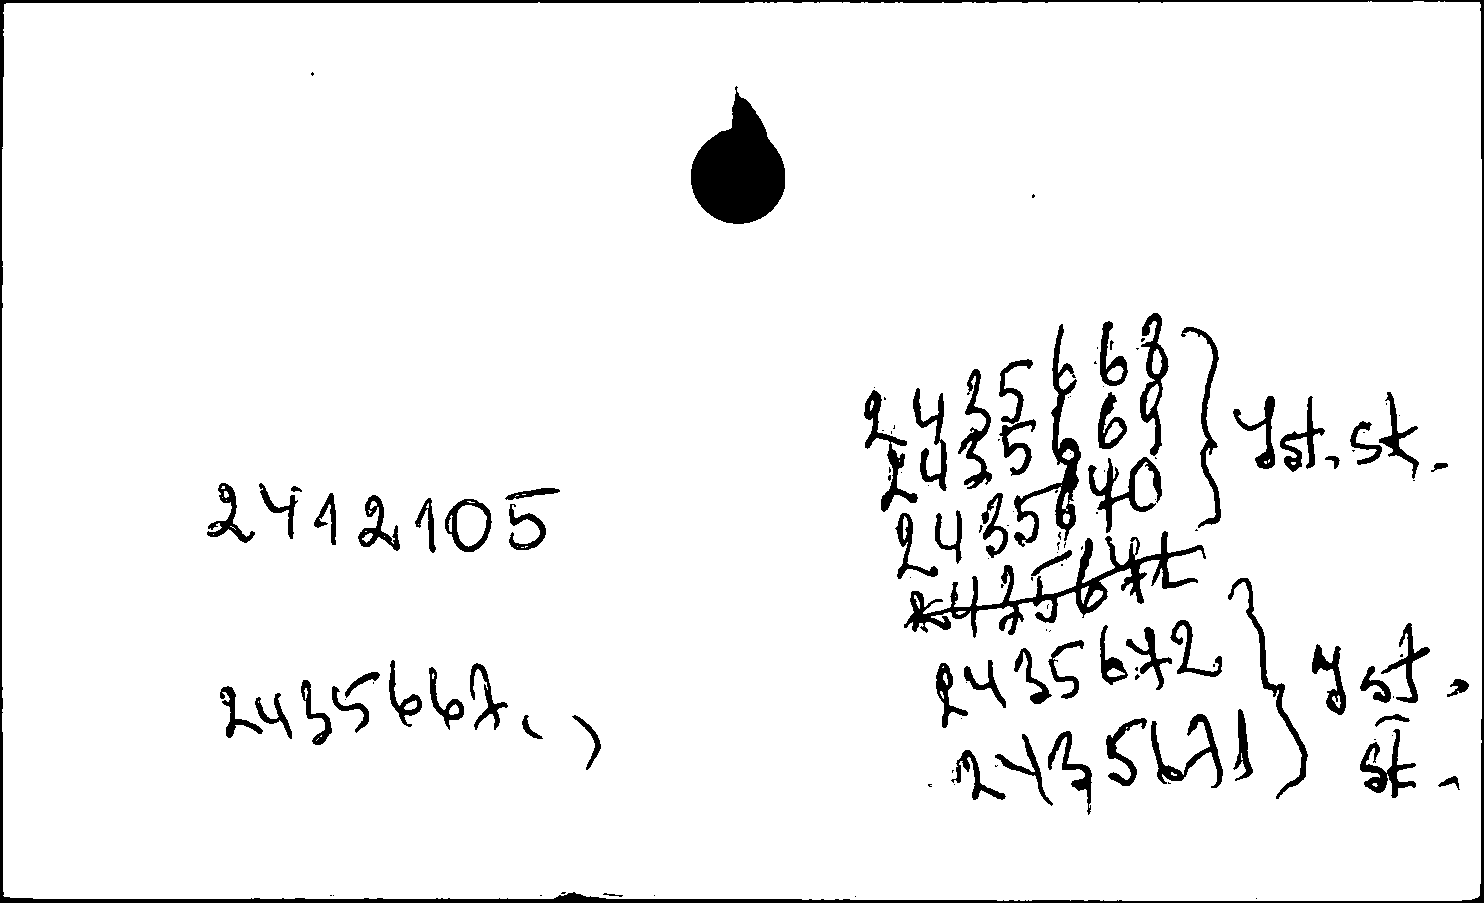 2412105
2435667. )
2435668
2435669
2435670
2435671
2435672
2435671
yst. st.
yst.
st.